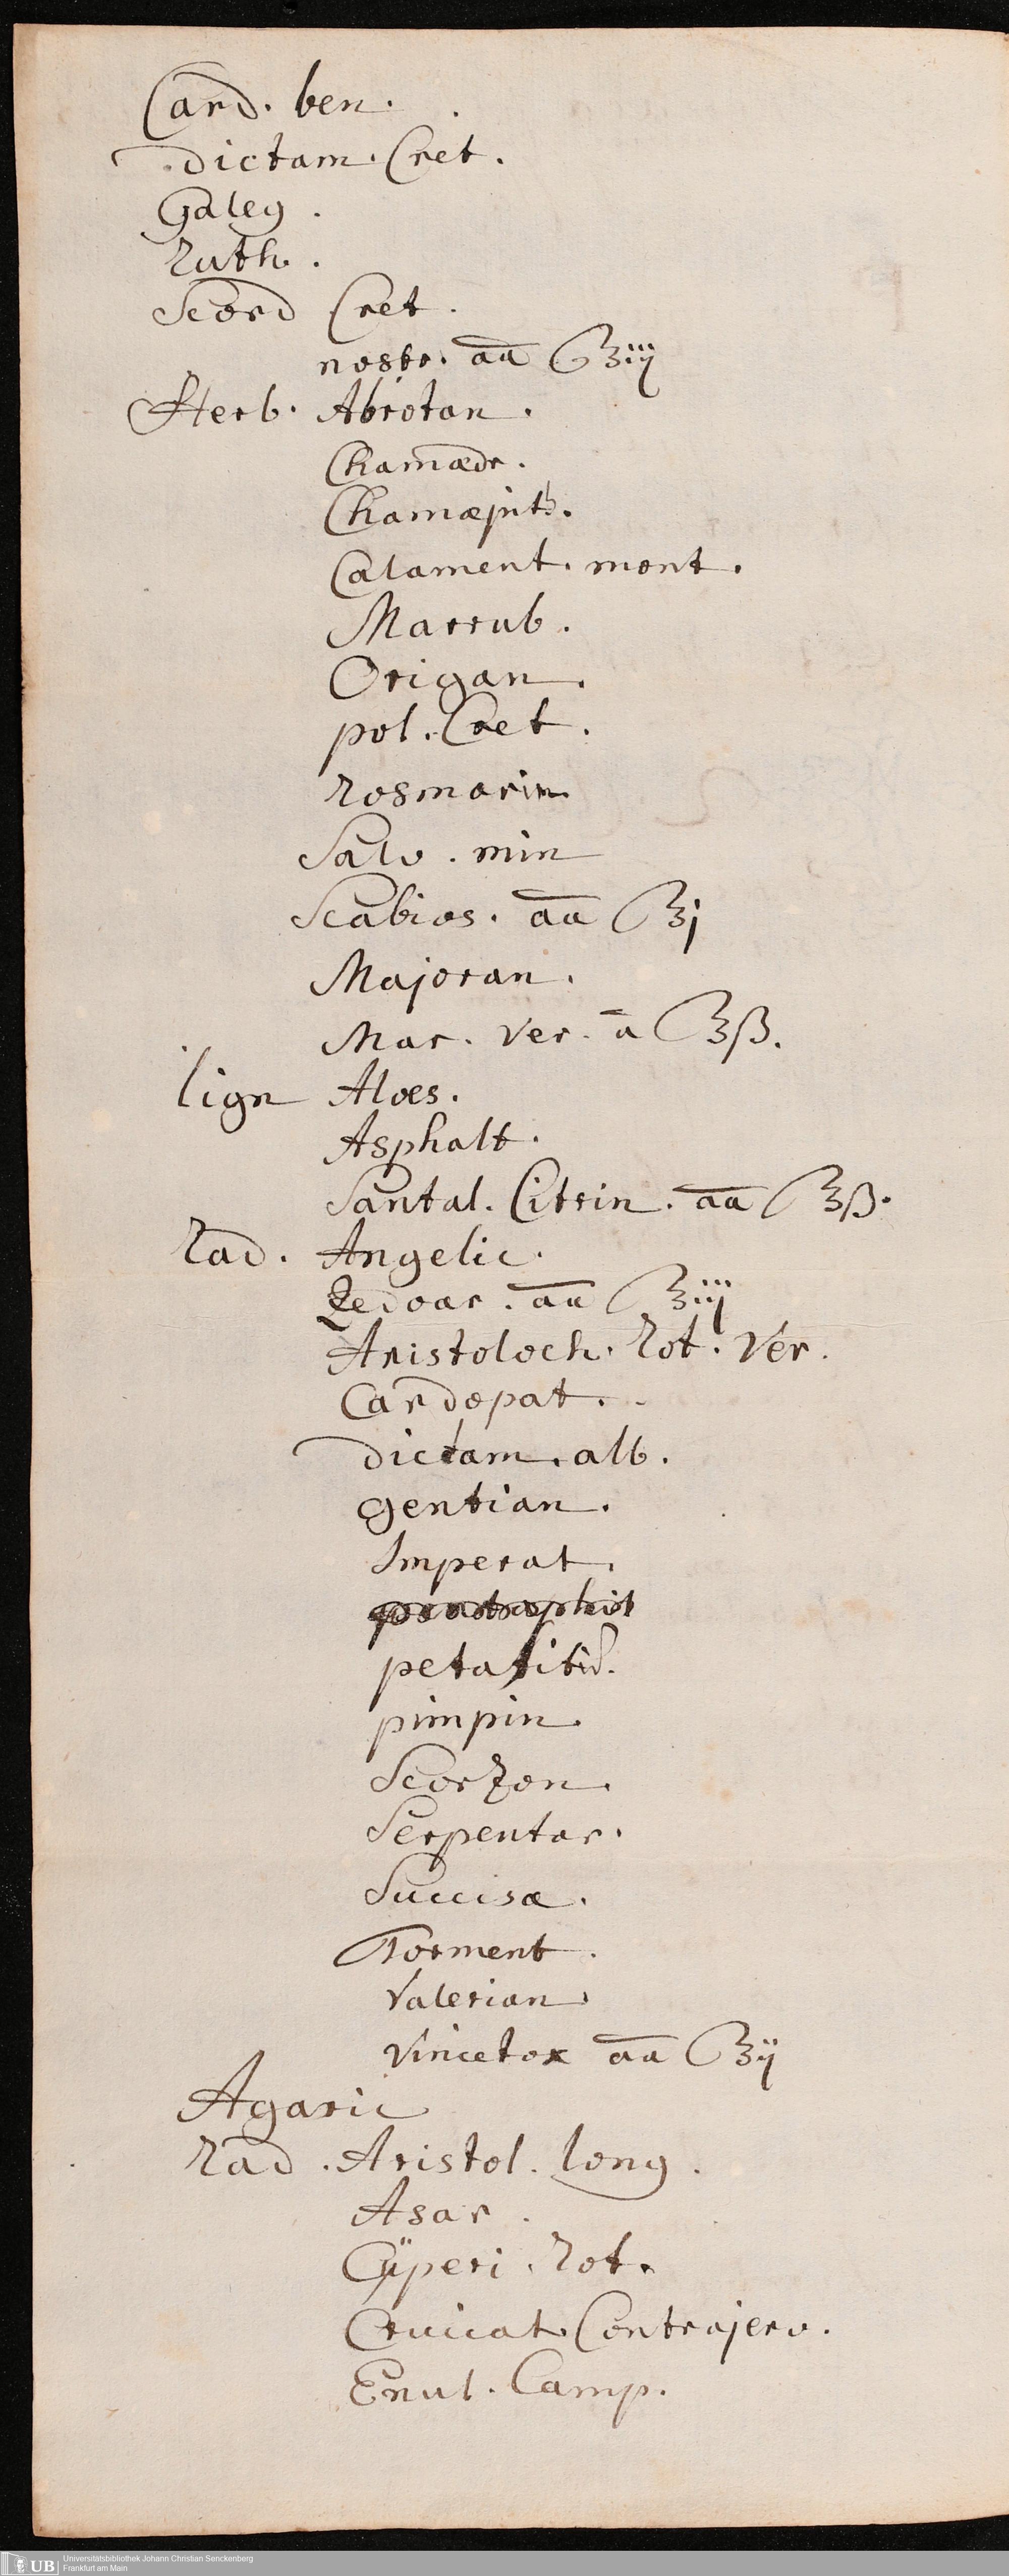 Card. ben.
dictam. Cret.
Galeg.
Ruth.
Scord Cret.
nostr. aā ʒiij
Herb. Abrotan.
Chamædr.
Chamæpith.
Calament. mont.
Marrub.
Origan.
pol. Cret.
Rosmarin
Salv. min
Scabios. aā ʒj
Majoran.
Mar. Ver. ā ʒß.
lign Aloes.
Asphalt.
Santal. Citrin. aā ʒß.
Rad. Angelic.
Zedoar. aā ʒiij
Aristoloch. Rot. Ver.
Cardopat.
dictam. alb.
gentian.
Imperat.
petasitid.
pimpin.
Scorzon.
Serpentar.
Succisæ.
Torment.
Valerian.
Vincetox aā ʒij
Agaric
Rad. Aristol. long.
Asar.
Cÿperi. Rot.
Cruciat. Contrajerv.
Enul. Camp.
UB Universitätsbibliothek Johann Christian Senckenberg
Frankfurt am Main